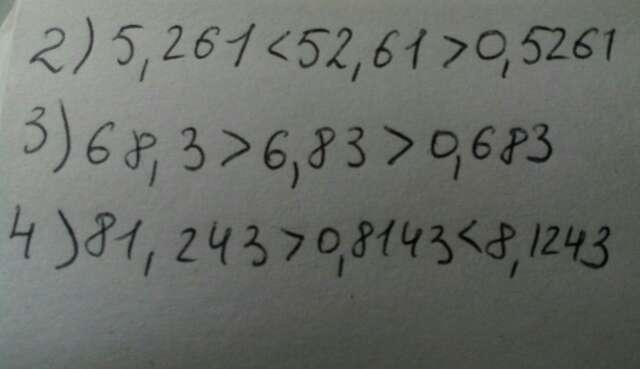 2) 5,261<52,61>0,5261
3) 68,3>6,83>0,683
4) 81,243>0,8143<8,1243